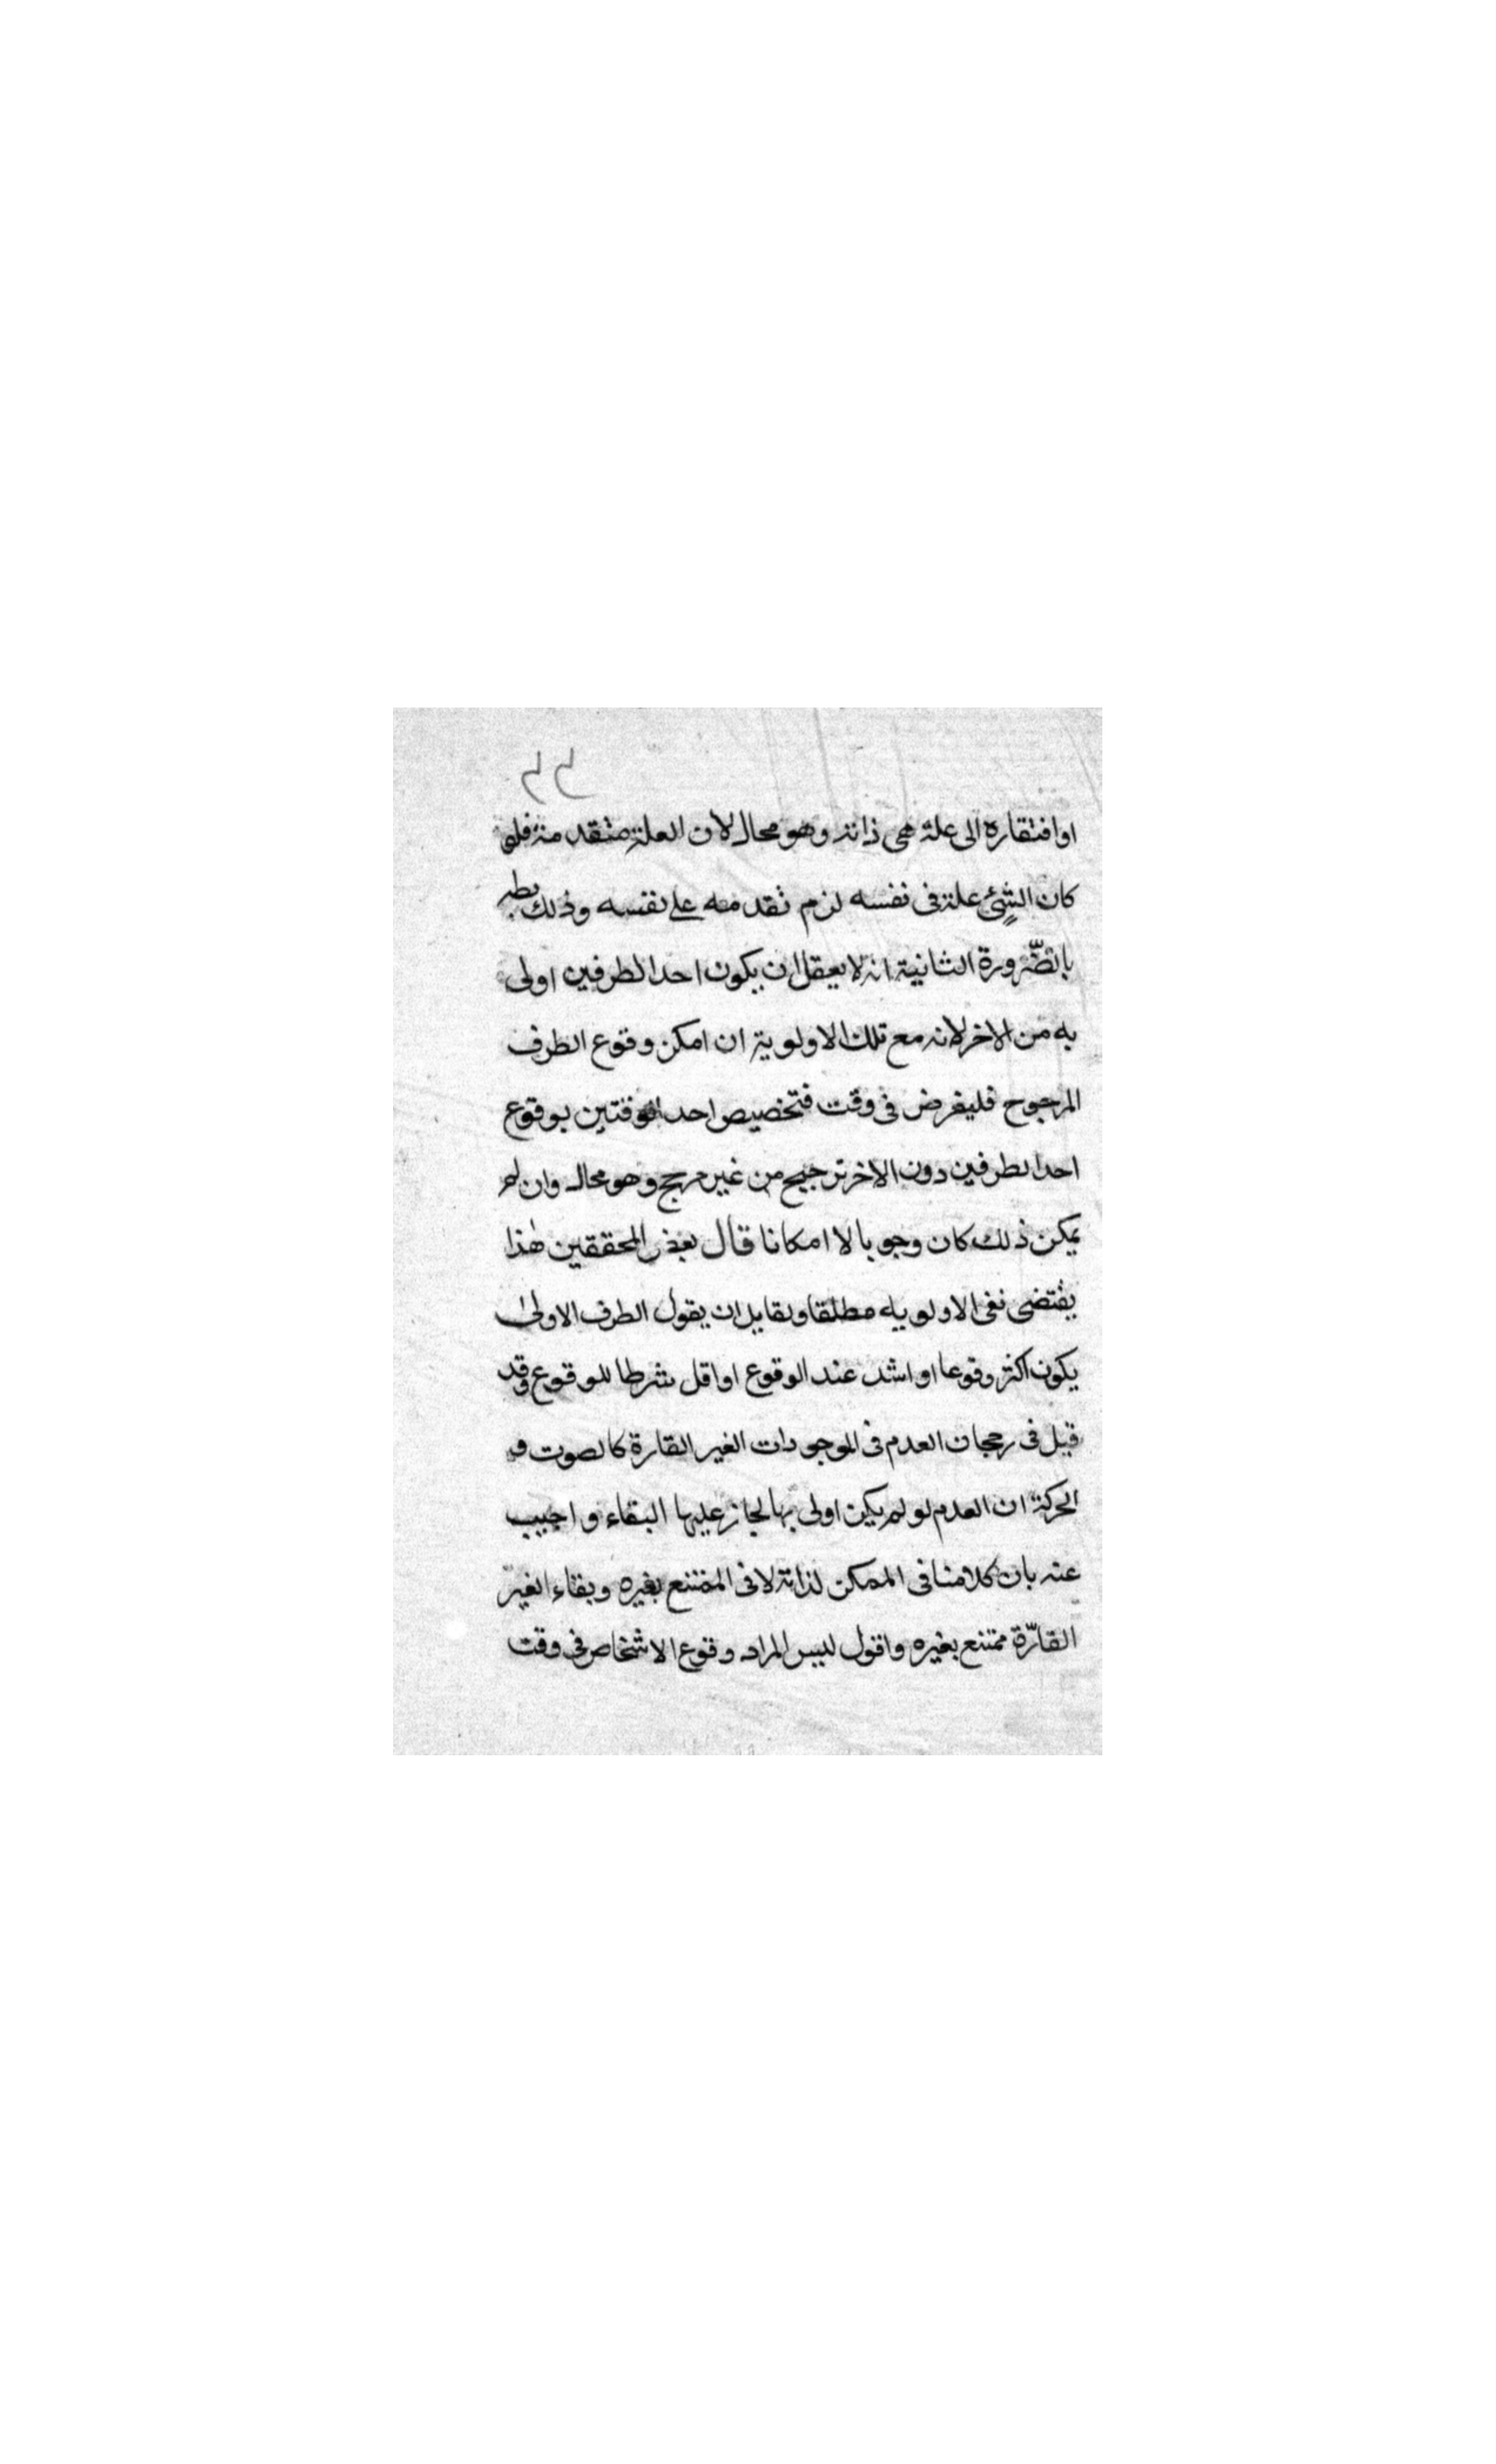 ٤٤
اوافتقاره الى علة هى ذاته وهو محال لان العلة متقدمة فلو
كان الشئ علة فى نفسه لزم تقدمه على نفسه وذلك بط
بالضّرورة الثانية انه لا يعقل ان يكون احد الطرفين اولى
به من الاخر لانه مع تلك الاولوية ان امكن وقوع الطرف
المرجوح فليفرض فى وقت فتخصيص احد الوقتين بوقوع
احد الطرفين دون الاخر ترجيح من غير مرجح وهو محال وان لم
يمكن ذلك كان وجوبا لا امكانا قال بعض المحققين هٰذا
يقتضى نفى الاولويه مطلقا ولقايل ان يقول الطرف الاولىٰ
يكون اكثر وقوعا او اشد عند الوقوع او اقل شرطا للوقوع وقد
قيل فى رجحان العدم فى الموجودات الغير القارة كالصوت و
الحركة ان العدم لو لم يكن اولى بها لجاز عليها البقاء واجيب
عنه بان كلامنا فى الممكن لذاته لا فى الممتنع بغيره وبقاء الغير
القارّة ممتنع بغيره واقول ليس المراد وقوع الاشخاص فى وقت